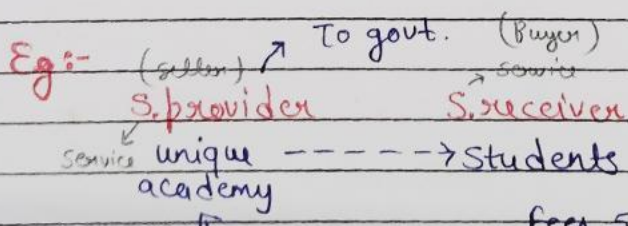 To govt. (Buyer)
Eg:- (seller) service
S.provider S.receiver
service unique -----> Students
academy
fees